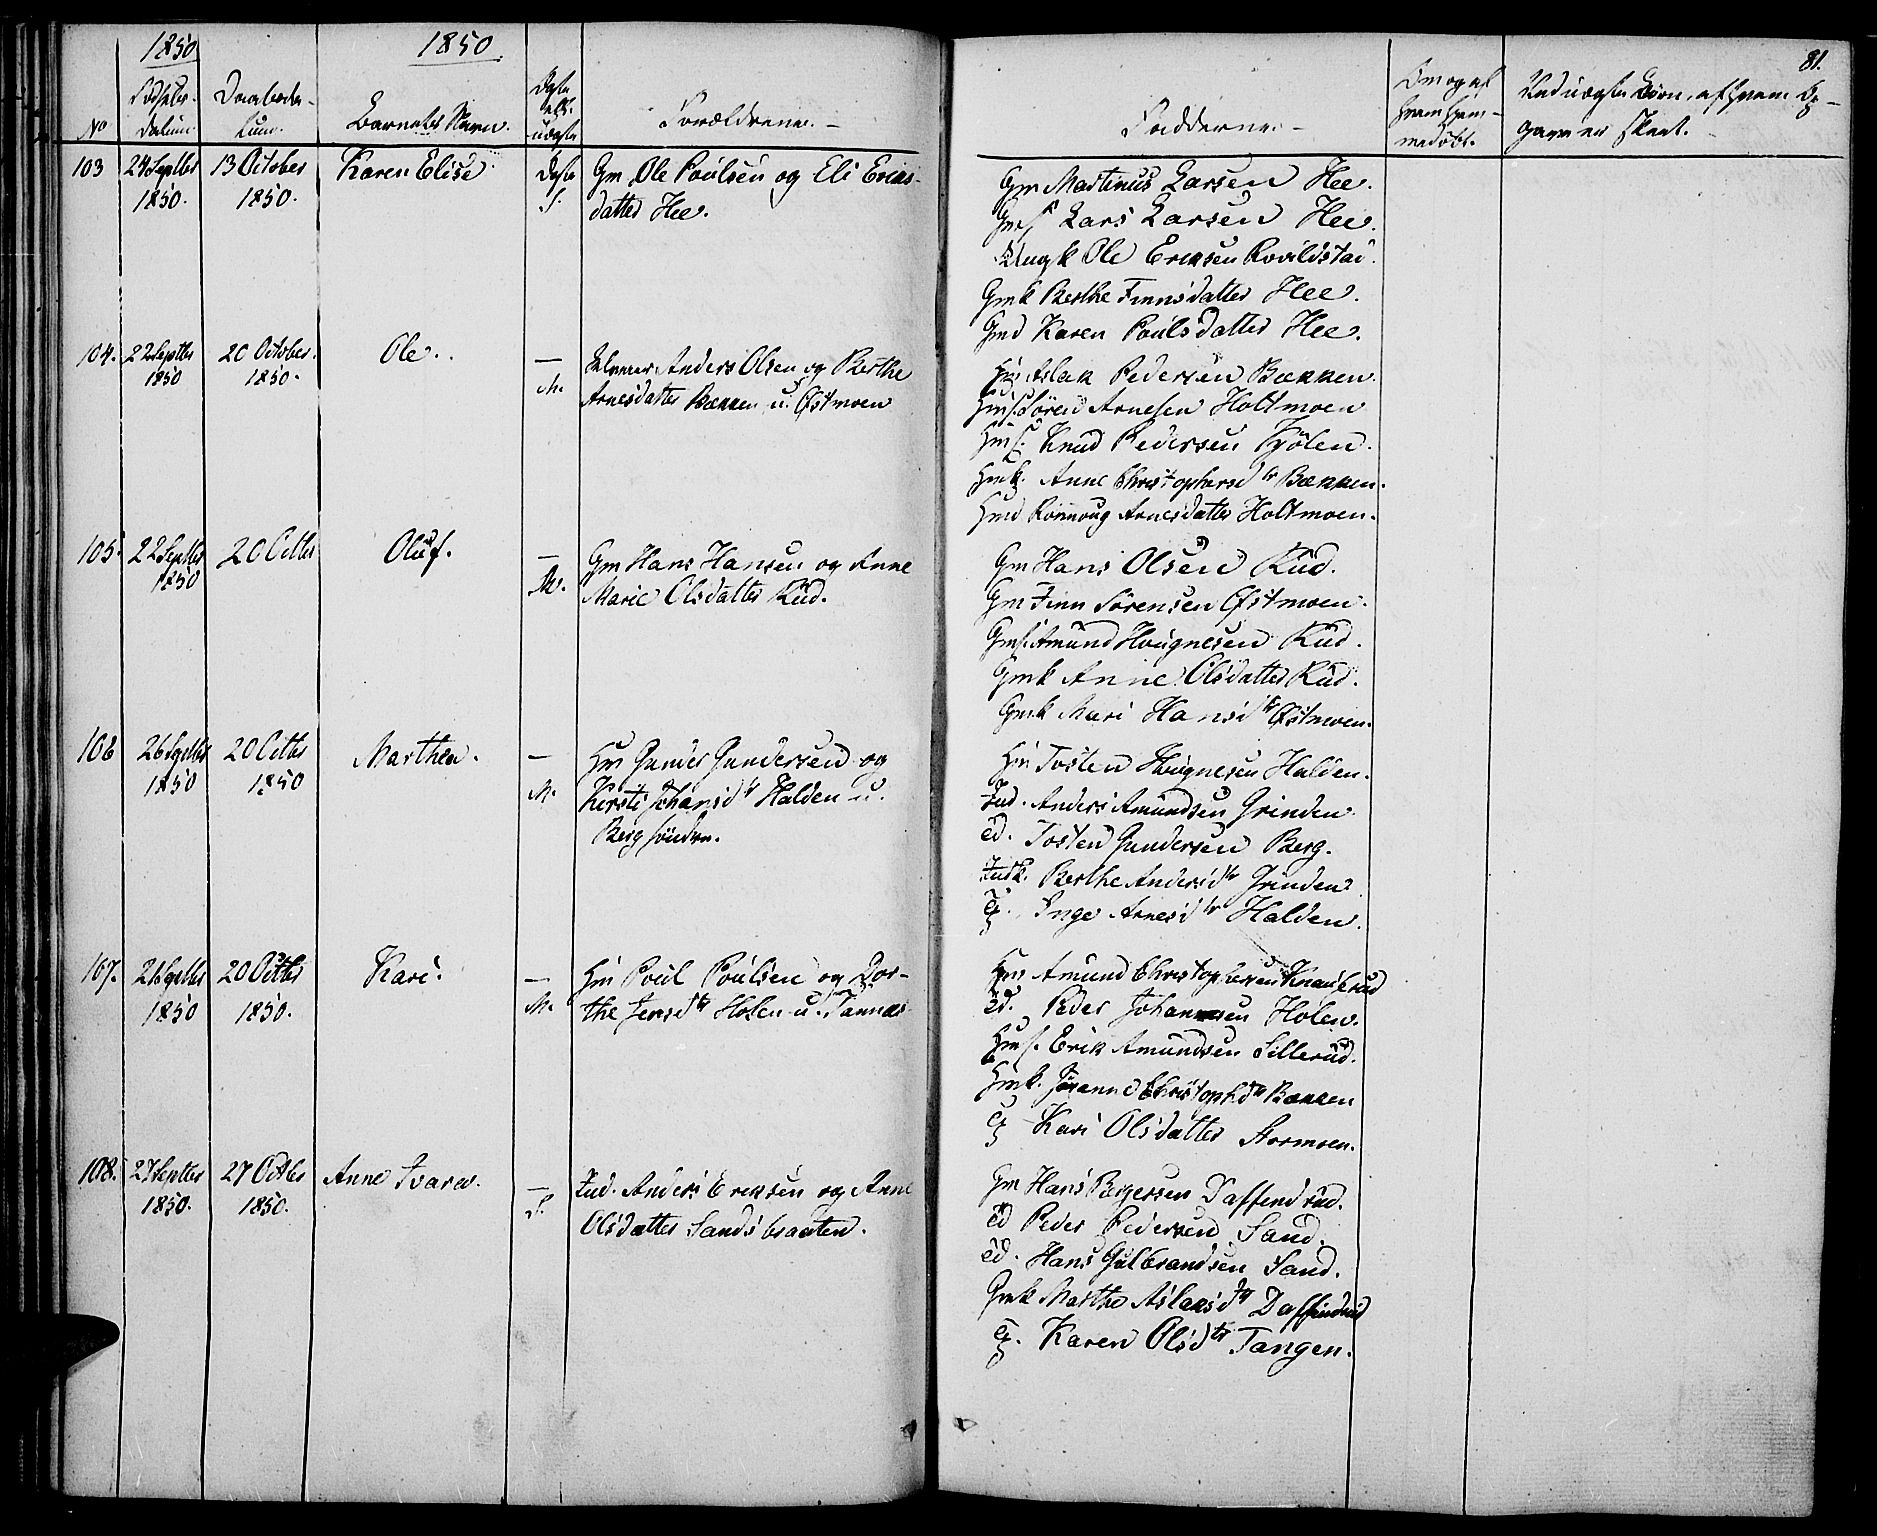 1850
1850
81.
No
Fødsels-
Datum.
Daabsda-
tum.
Barnets Navn.
Ægte
ell.
uægte
Forældrene.
Fadderne.
Om og af
hvem hjem-
medøbt.
Ved uægte Børn, af hvem Op-
gaven er skeet.
103
24 Septbr
1850.
13 October
1850.
Karen Elise
Ægte
S.
Gm Ole Poulsen og Eli Erics-
datter Hee.
Gm Martinus Larsen Hee.
Gms Lars Larsen Hee.
Ungk Ole Eriksen
Gmk Berthe Finnsdatter Hee.
Gmd Karen Poulsdatter Hee.
104.
22 Septbr
1850
20 October.
1850.
Ole.
—
M.
Anders Olsen og Berthe
Arnesdatter Bækken u. Østmoen
Aslak Pedersen Bækken.
Hms. Sören Arnesen Holtmoen
Hms. Knud Pedersen Hólen.
Hmk. Anne Christophersdtr Bækken.
Hmd Rönnoug Arnesdatter Holtmoen.
105.
22 Septbr
1850
20 Octbr
Oluf.
—
M.
Gm Hans Hansen og Anne
Marie Olsdatter Rud.
Gm Hans Olsen Rud.
Gm Finn Sörensen Østmoen.
Gms. Amund Hougnesen Rud.
Gmk Anne Olsdatter Rud.
Gmk Mari Hansdtr Østmoen.
106
26 Septbr
1850
20 Octbr
1850
Marthen.
—
M.
Hm Gunder Gundersen og
Kersti Johansdtr Halden u.
Berg söndre.
Hm Tosten Hougnesen Halden.
Ind. Anders Amundsen Grinden
ed. Tosten Gundersen Berg.
Indk. Berthe Andersdtr Grinden
Inge Arnesdtr Halden.
107.
21 Septbr
1850
20 Octbr
1850.
Kari.
—
M.
Hm Poul Poulsen og Dor-
the Jensdtr Holen u.
Hm Amund Christophersen Knausrud
ed. Peder Johannesen Holen.
Hms. Erik Amundsen Sillerud.
Hmk. Johanne Christophdtr Bækken
Kari Olsdatter Stormoen.
108.
27 Septbr
1850.
27 Octbr
1850.
Anne Ivara.
—
S.
Ind. Anders Eriksen og Anne
Olsdatter Sandsbraaten.
Gm Hans Børgersen Daffendrud.
ed Peder Pedersen Sand.
ed. Hans Gulbrandsen Sand.
Gmk Marthe Aslaksdtr Daffindrud
Karen Olsdtr Tangen.